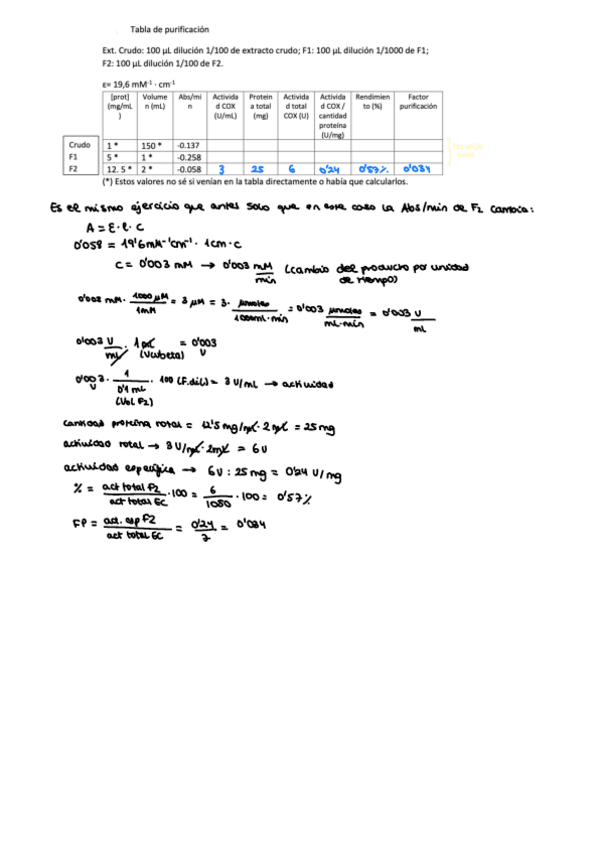 Tabla de purificación
Ext. Crudo: 100 µL dilución 1/100 de extracto crudo; F1: 100 µL dilución 1/1000 de F1;
F2: 100 µL dilución 1/100 de F2.
ε= 19,6 mM⁻¹ · cm⁻¹
[prot] (mg/mL) Volumen (mL) Abs/min Actividad COX (U/mL) Proteína total (mg) Actividad total COX (U) Actividad COX / cantidad proteína (U/mg) Rendimiento (%) Factor purificación
Crudo 1 * 150 * -0.137
F1 5 * 1 * -0.258
F2 12. 5 * 2 * -0.058 3 25 6 0'24 0'57% 0'034
(*) Estos valores no sé si venían en la tabla directamente o había que calcularlos.
Es el mismo ejercicio que antes solo que en este caso la Abs/min de F2 cambia:
A = ε · l · c
0'058 = 19'6 mM⁻¹ cm⁻¹ · 1cm · c
c = 0'003 mM → 0'003 mM/min (cambio del producto por unidad de tiempo)
0'003 mM · 1000 µM/1mM = 3 µM = 3 · µmoles/1000mL·min = 0'003 µmoles/mL·min = 0'003 U/mL
0'003 U/mL · 1 mL (Vcubeta) = 0'003 U
0'003 U · 1/0'1 mL (Vol F2) · 100 (F.dil) = 3 U/mL → actividad
cantidad proteína total = 12'5 mg/mL · 2 mL = 25 mg
actividad total → 3 U/mL · 2mL = 6U
actividad específica → 6U : 25 mg = 0'24 U/mg
% = act total F2/act total EC · 100 = 6/1050 · 100 = 0'57%
FP = act. esp F2/act total EC = 0'24/7 = 0'034